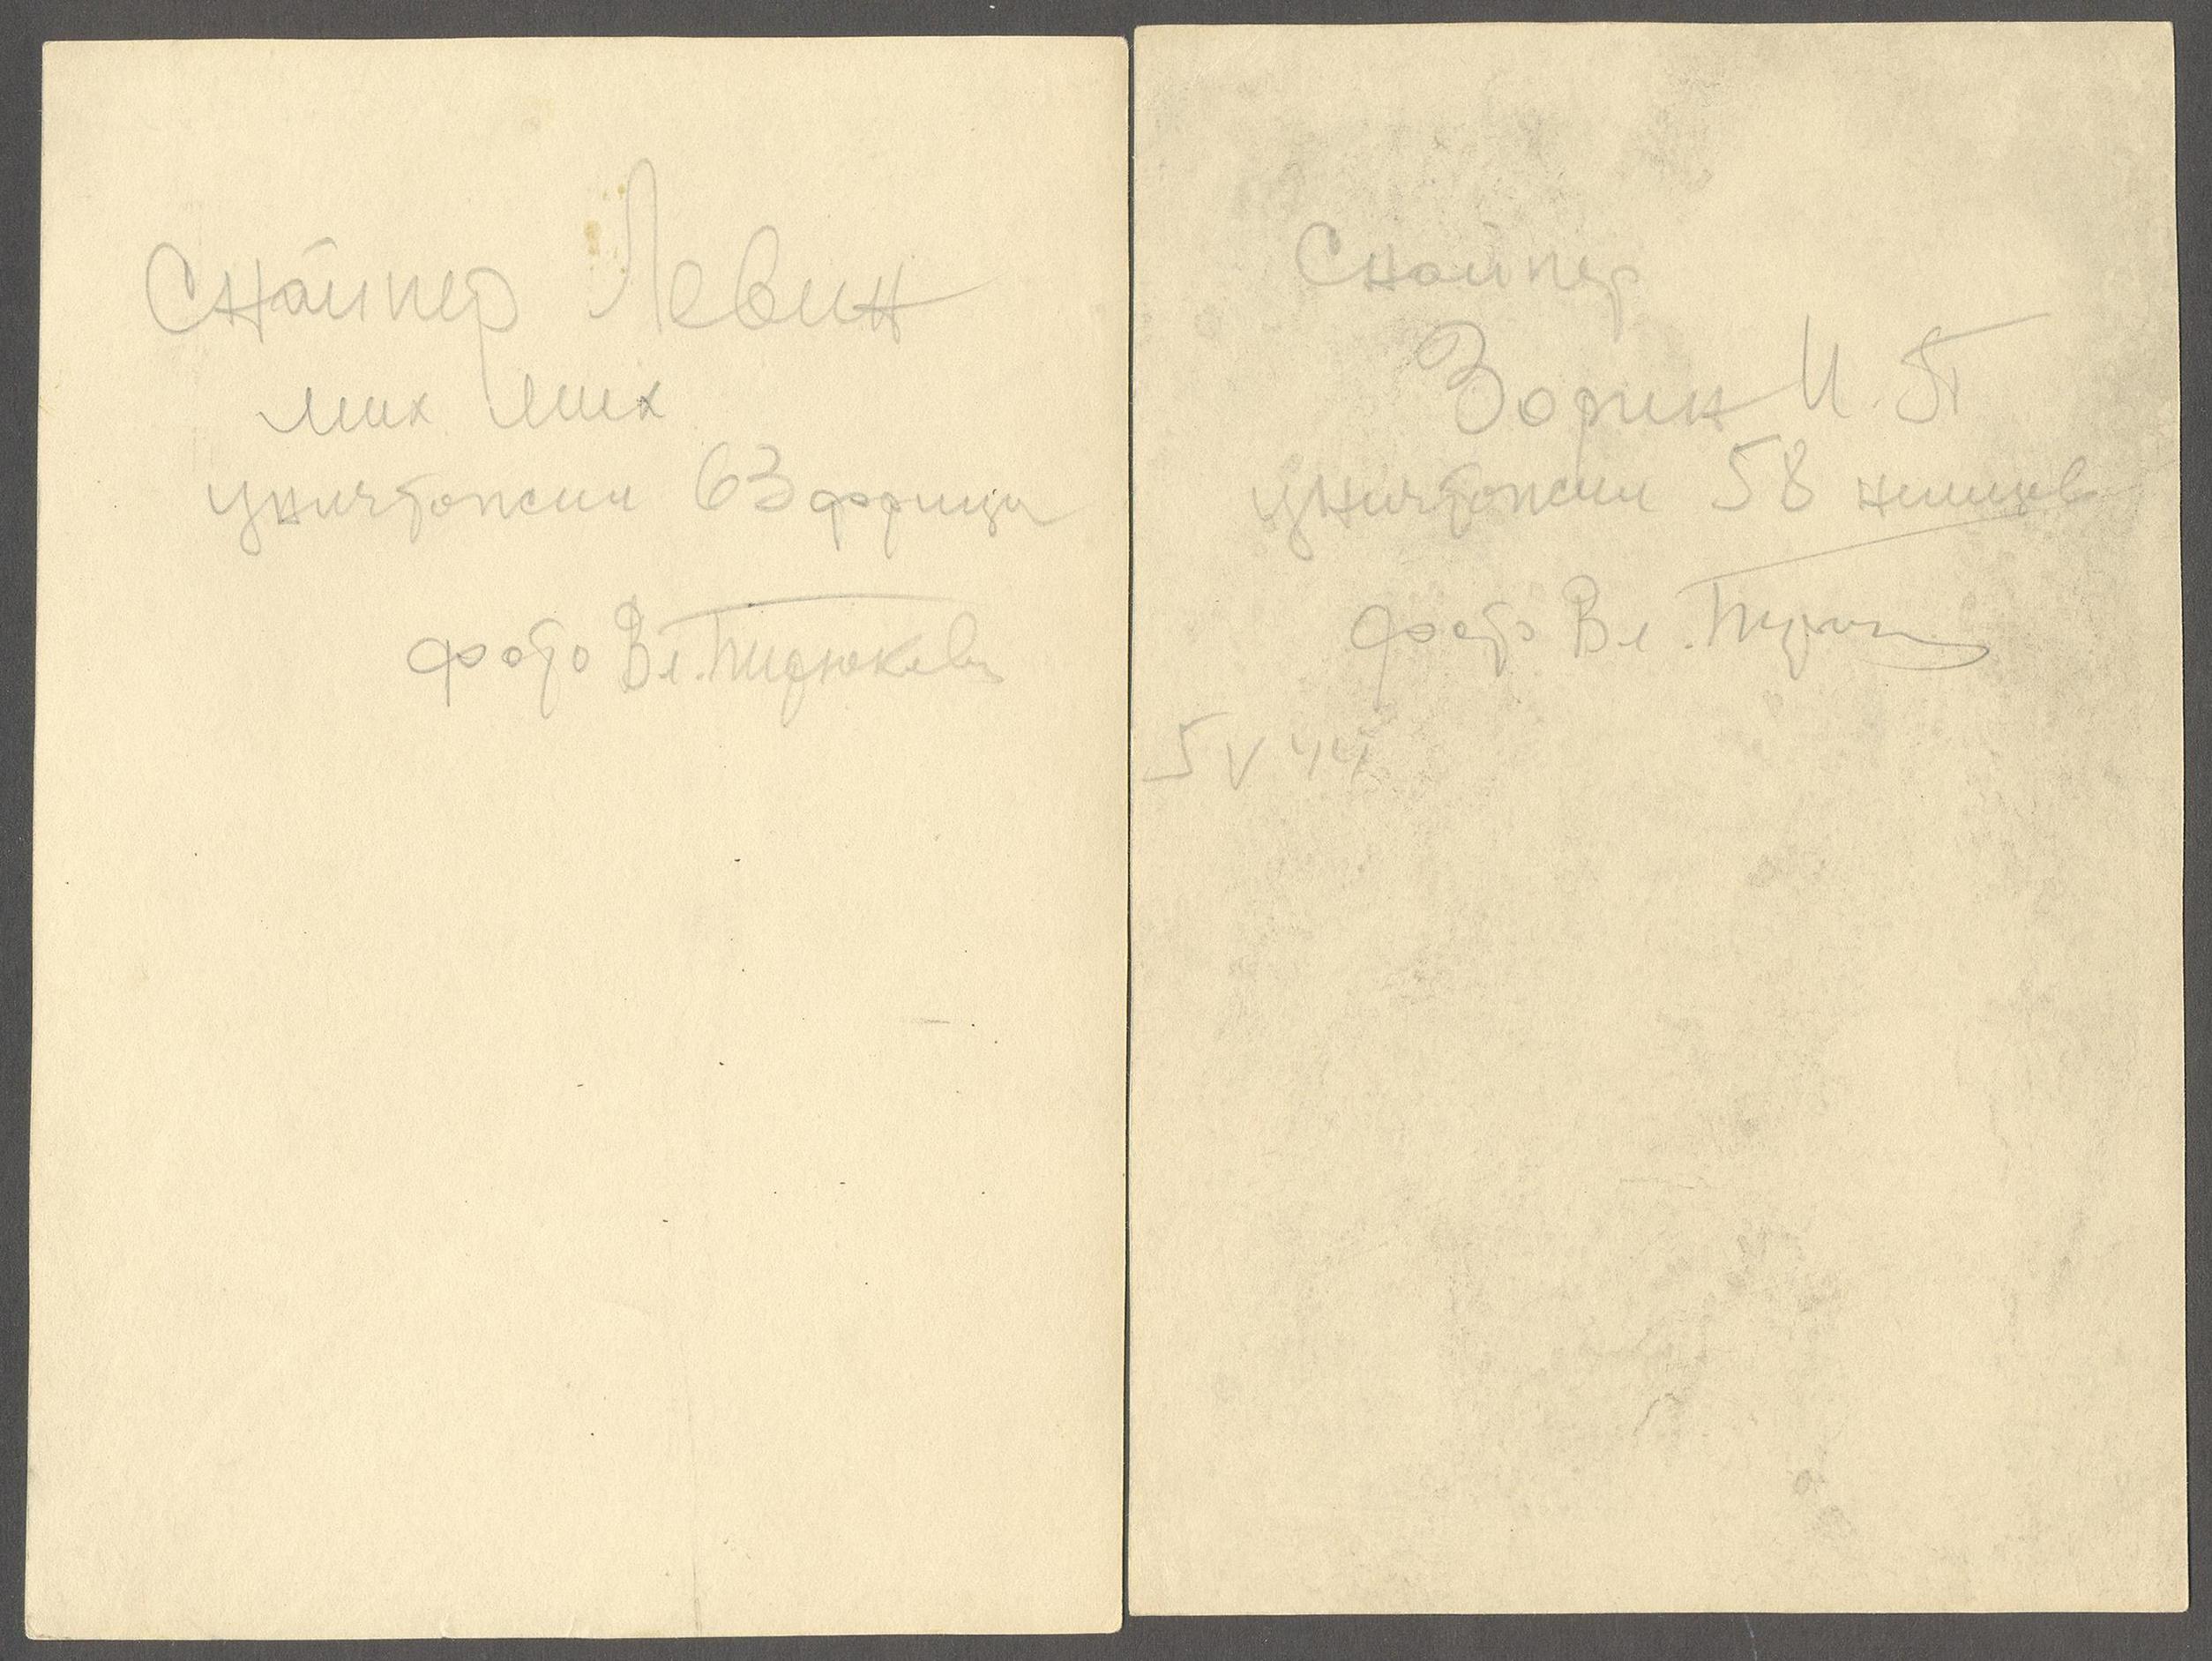 Снайпер Левин
Мих Мих
уничтожил 63 фрица
фото Вл.
Снайпер
Зорин И. П
уничтожил 58 немцев
фото Вл.
5 V 44